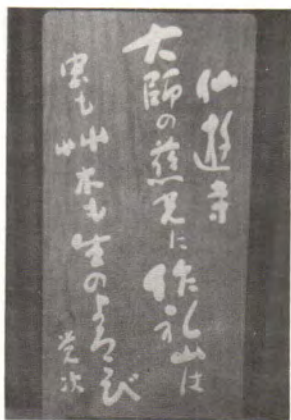 仙遊寺
大師の慈兄に作礼山は
虫も艸木も生のよろこび
覚次